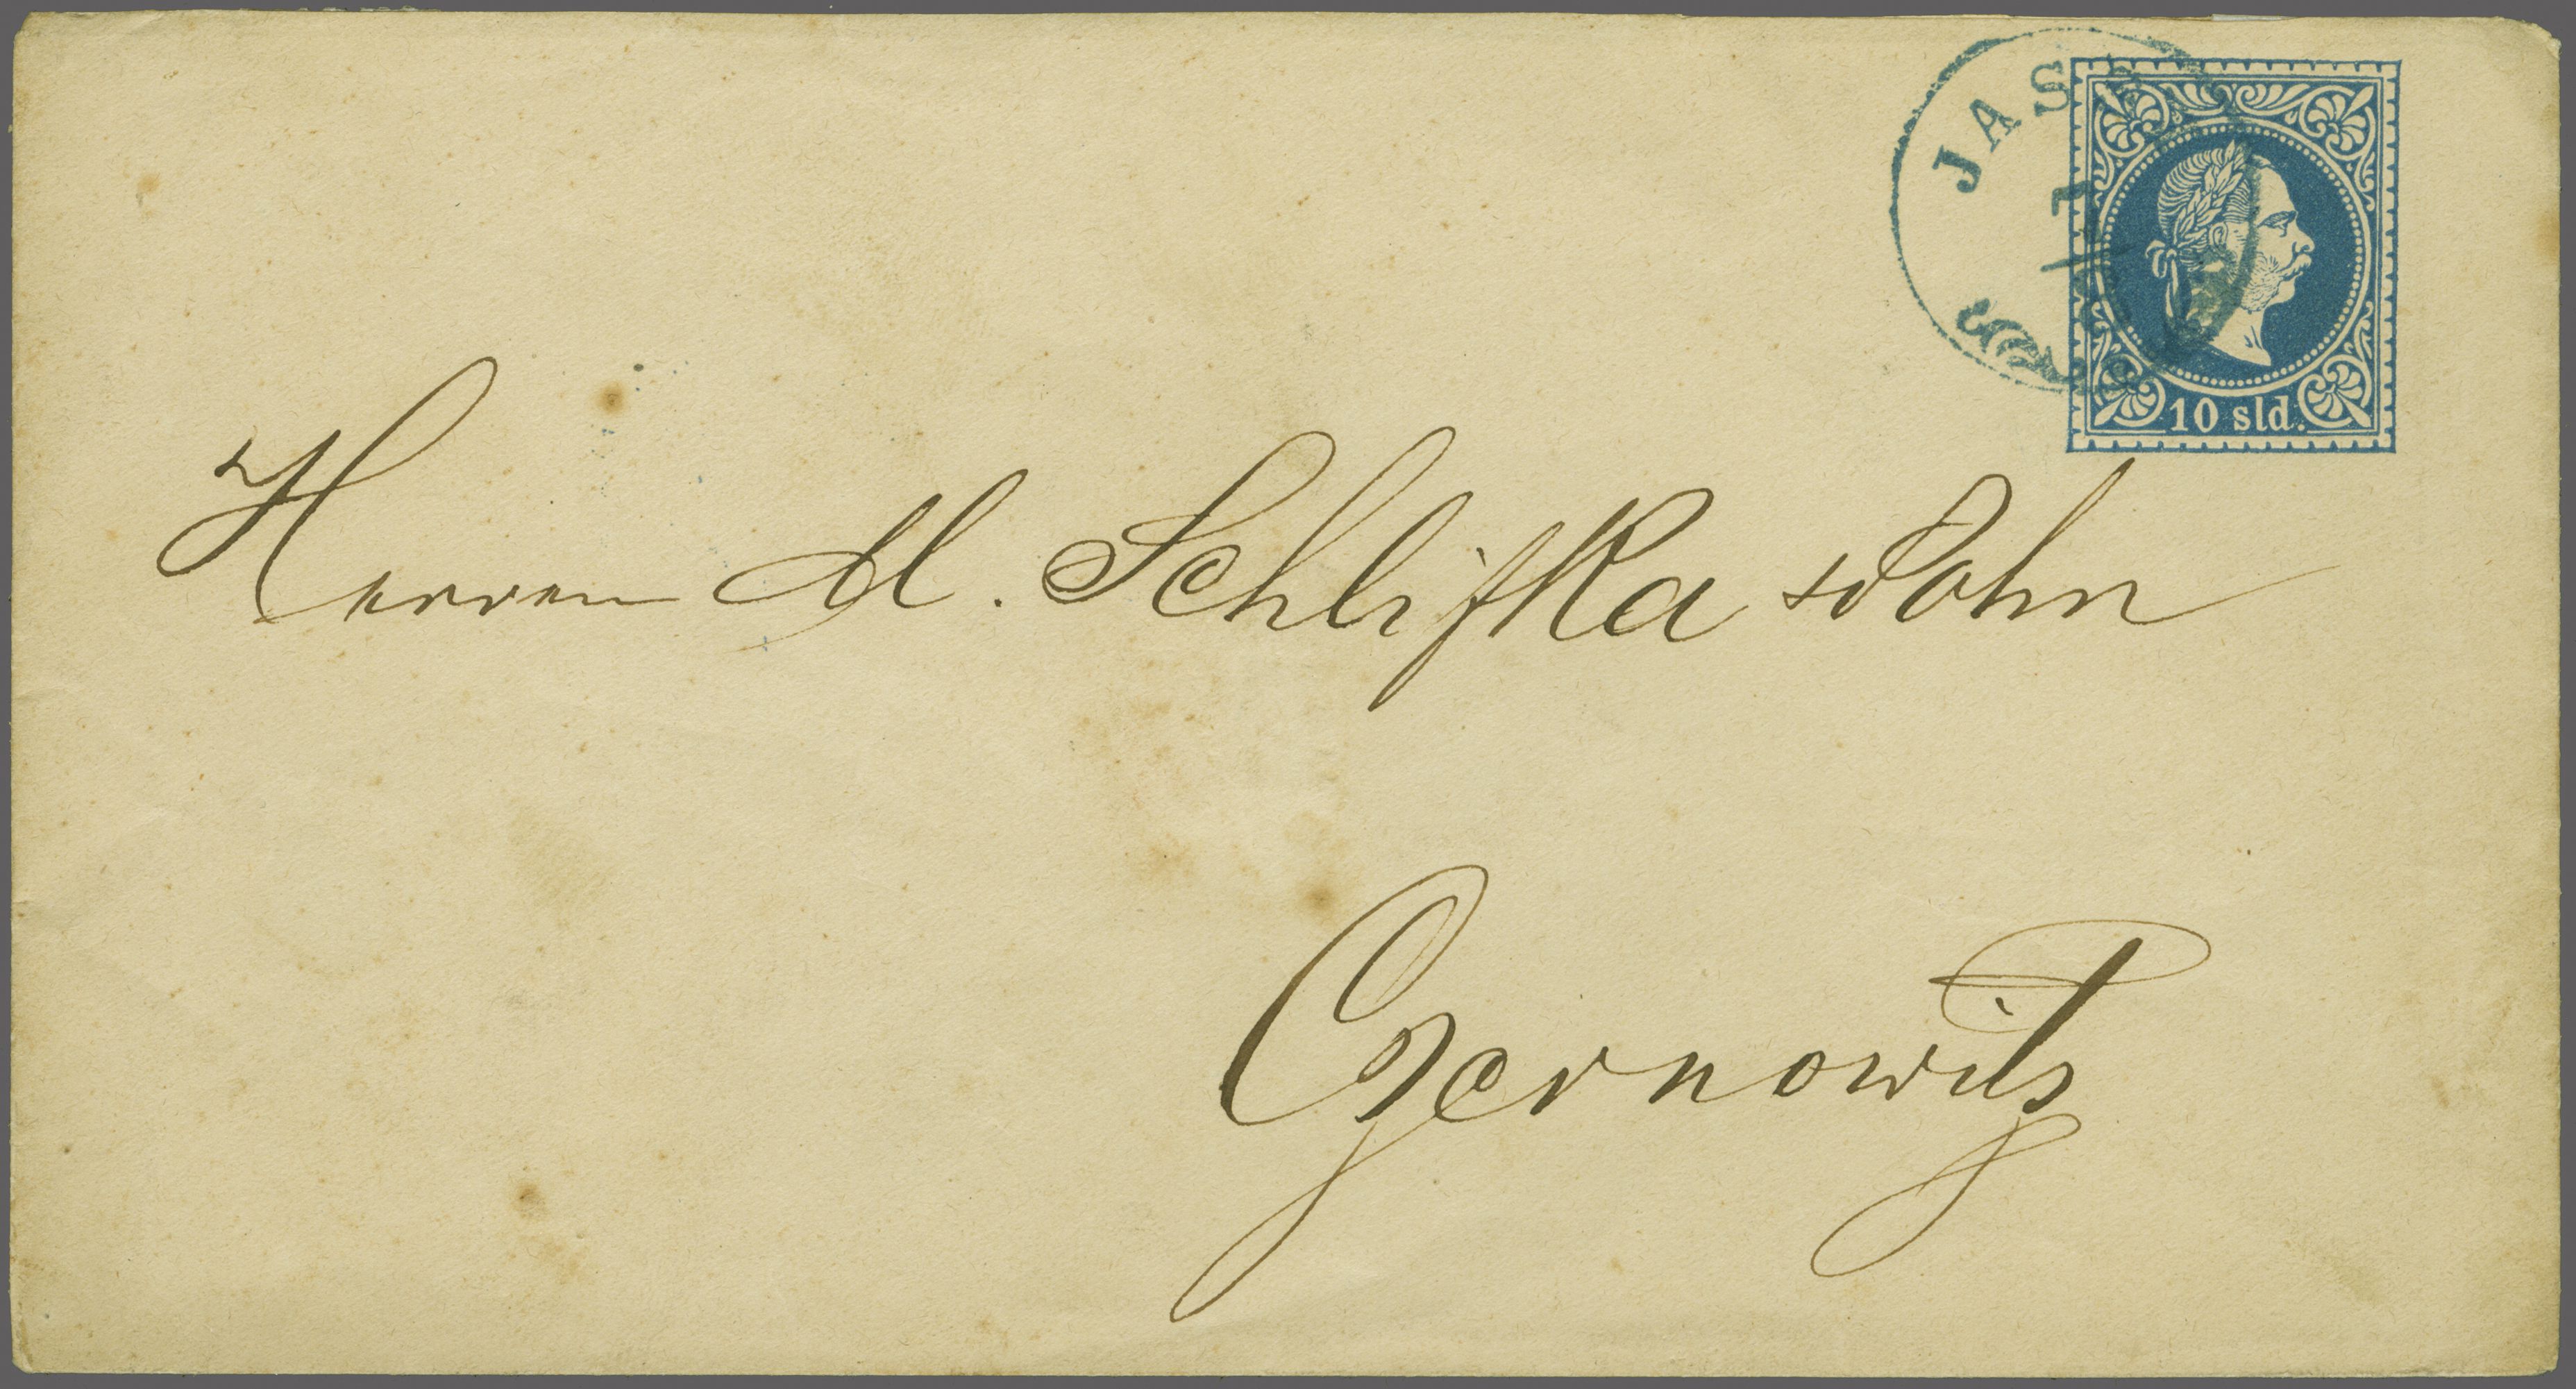 JASSY
10 sld.
Herren M. Schlifka & Sohn
Czernowitz